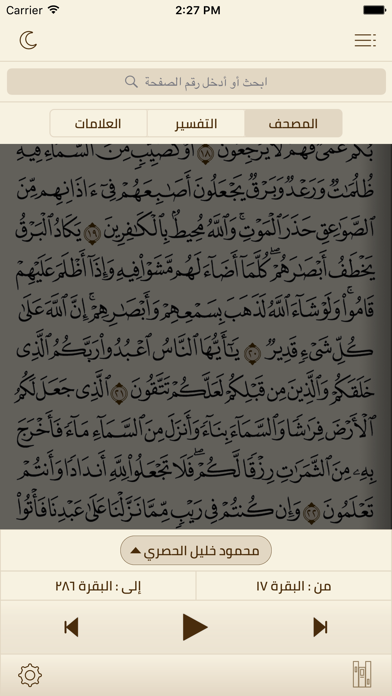 Carrier 2:27 PM
ابحث أو أدخل رقم الصفحة
المصحف التفسير العلامات
بُكْمٌ عُمْيٌ فَهُمْ لَا يَرْجِعُونَ ١٨ أَوْ كَصَيِّبٍ مِّنَ ٱلسَّمَآءِ فِيهِ
ظُلُمَٰتٌ وَرَعْدٌ وَبَرْقٌ يَجْعَلُونَ أَصَٰبِعَهُمْ فِىٓ ءَاذَانِهِم مِّنَ
ٱلصَّوَٰعِقِ حَذَرَ ٱلْمَوْتِ ۚ وَٱللَّهُ مُحِيطٌۢ بِٱلْكَٰفِرِينَ ١٩ يَكَادُ ٱلْبَرْقُ
يَخْطَفُ أَبْصَٰرَهُمْ ۖ كُلَّمَآ أَضَآءَ لَهُم مَّشَوْا۟ فِيهِ وَإِذَآ أَظْلَمَ عَلَيْهِمْ
قَامُوا۟ ۚ وَلَوْ شَآءَ ٱللَّهُ لَذَهَبَ بِسَمْعِهِمْ وَأَبْصَٰرِهِمْ ۚ إِنَّ ٱللَّهَ عَلَىٰ
كُلِّ شَىْءٍ قَدِيرٌ ٢٠ يَٰٓأَيُّهَا ٱلنَّاسُ ٱعْبُدُوا۟ رَبَّكُمُ ٱلَّذِى
خَلَقَكُمْ وَٱلَّذِينَ مِن قَبْلِكُمْ لَعَلَّكُمْ تَتَّقُونَ ٢١ ٱلَّذِى جَعَلَ لَكُمُ
ٱلْأَرْضَ فِرَٰشًا وَٱلسَّمَآءَ بِنَآءً وَأَنزَلَ مِنَ ٱلسَّمَآءِ مَآءً فَأَخْرَجَ
بِهِۦ مِنَ ٱلثَّمَرَٰتِ رِزْقًا لَّكُمْ ۖ فَلَا تَجْعَلُوا۟ لِلَّهِ أَندَادًا وَأَنتُمْ
تَعْلَمُونَ ٢٢ وَإِن كُنتُمْ فِى رَيْبٍ مِّمَّا نَزَّلْنَا عَلَىٰ عَبْدِنَا فَأْتُوا۟
محمود خليل الحصري
من : البقرة ١٧ إلى : البقرة ٢٨٦